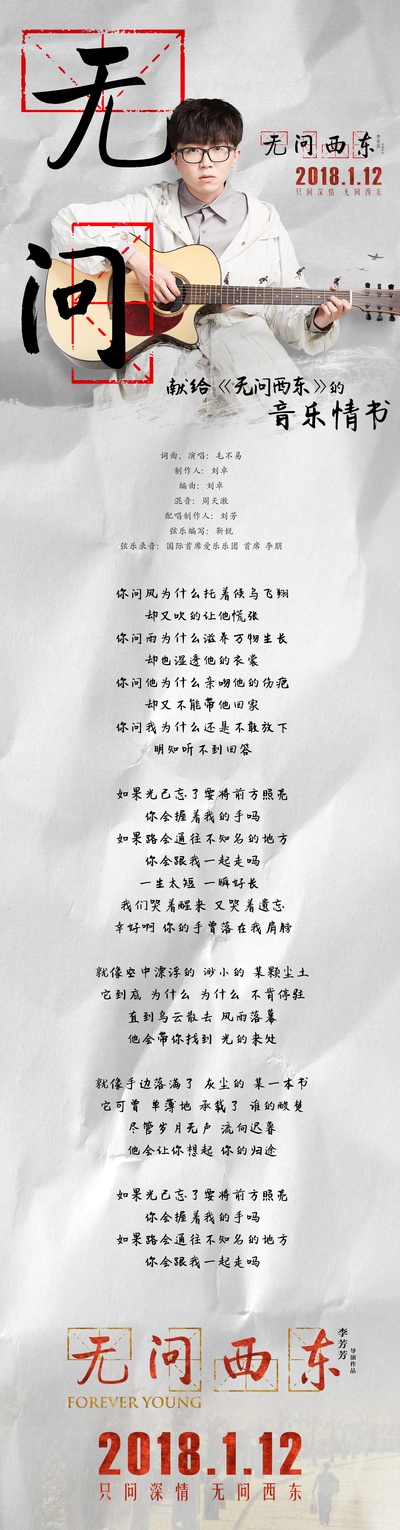 无问
无问西东
2018.1.12
只问深情 无问西东
献给《无问西东》的
音乐情书
词曲、演唱：毛不易
制作人：刘卓
编曲：刘卓
混音：周天澈
配唱制作人：刘芳
弦乐编写：靳锐
弦乐录音：国际首席爱乐乐团 首席 李朋
你问风为什么托着候鸟飞翔
却又吹的让他慌张
你问雨为什么滋养万物生长
却也湿透他的衣裳
你问他为什么亲吻他的伤疤
却又不能带他回家
你问我为什么还是不敢放下
明知听不到回答
如果光已忘了要将前方照亮
你会握着我的手吗
如果路会通往不知名的地方
你会跟我一起走吗
一生太短 一瞬好长
我们哭着醒来 又哭着遗忘
幸好啊 你的手曾落在我肩膀
就像空中漂浮的 渺小的 某颗尘土
它到底 为什么 为什么 不肯停驻
直到乌云散去 风雨落幕
他会带你找到 光的来处
就像手边落满了 灰尘的 某一本书
它可曾 单薄地 承载了 谁的酸楚
尽管岁月无声 流向迟暮
他会让你想起 你的归途
如果光已忘了要将前方照亮
你会握着我的手吗
如果路会通往不知名的地方
你会跟我一起走吗
无问西东
李芳芳
导演作品
FOREVER YOUNG
2018.1.12
只问深情 无问西东